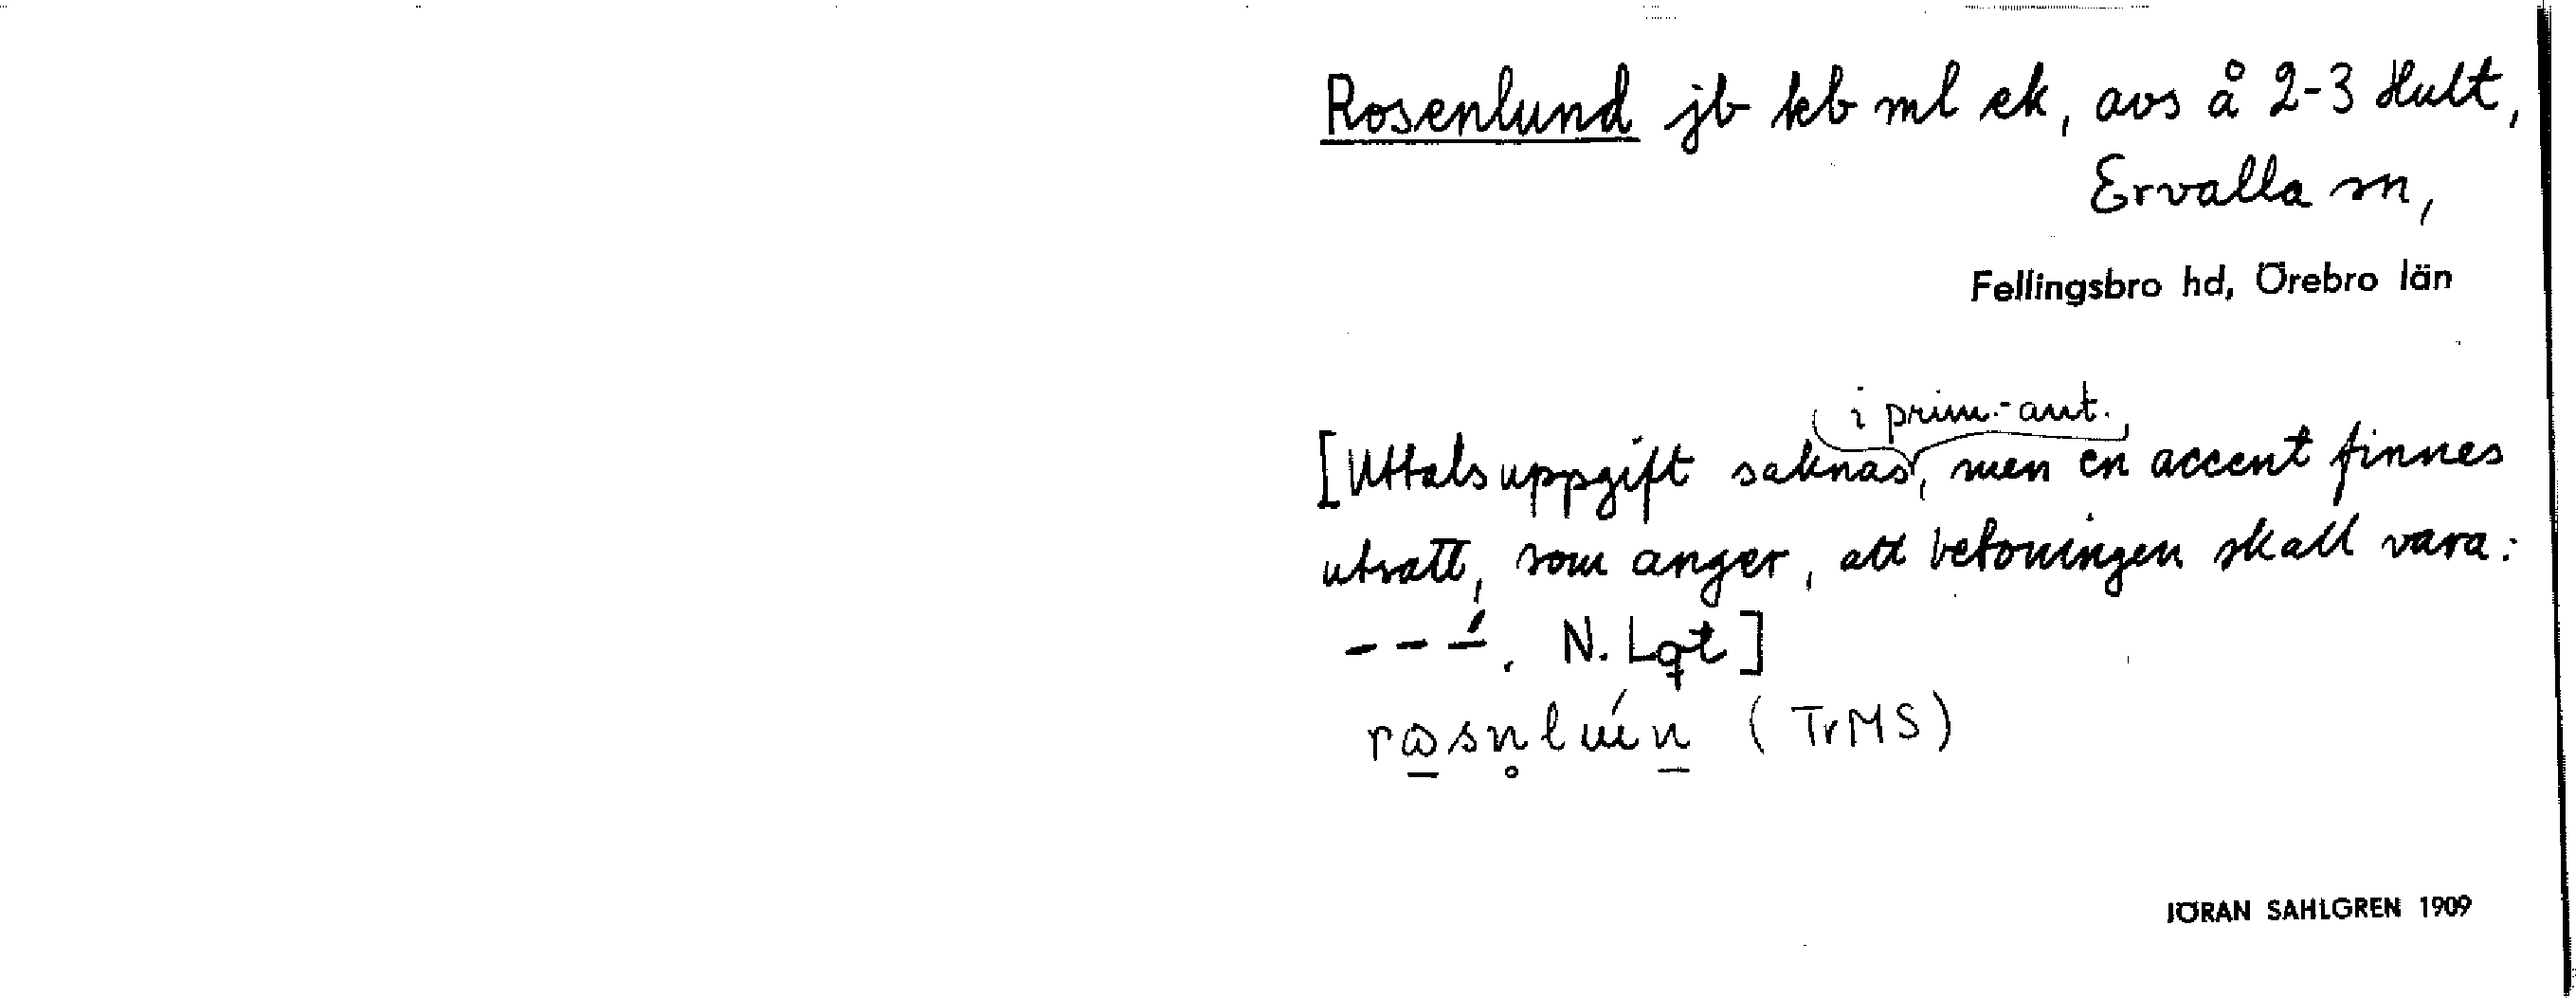 Rosenlund jb kb ml ek, avs å 2-3 Hult,
Ervalla sn,
Fellingsbro hd, Örebro län
i prim.-ant.
[Uttalsuppgift saknas, men en accent finnes
utsatt, som anger, att betoningen skall vara:
---́. N. Lqt]
(TrMS)
JÖRAN SAHLGREN 1909